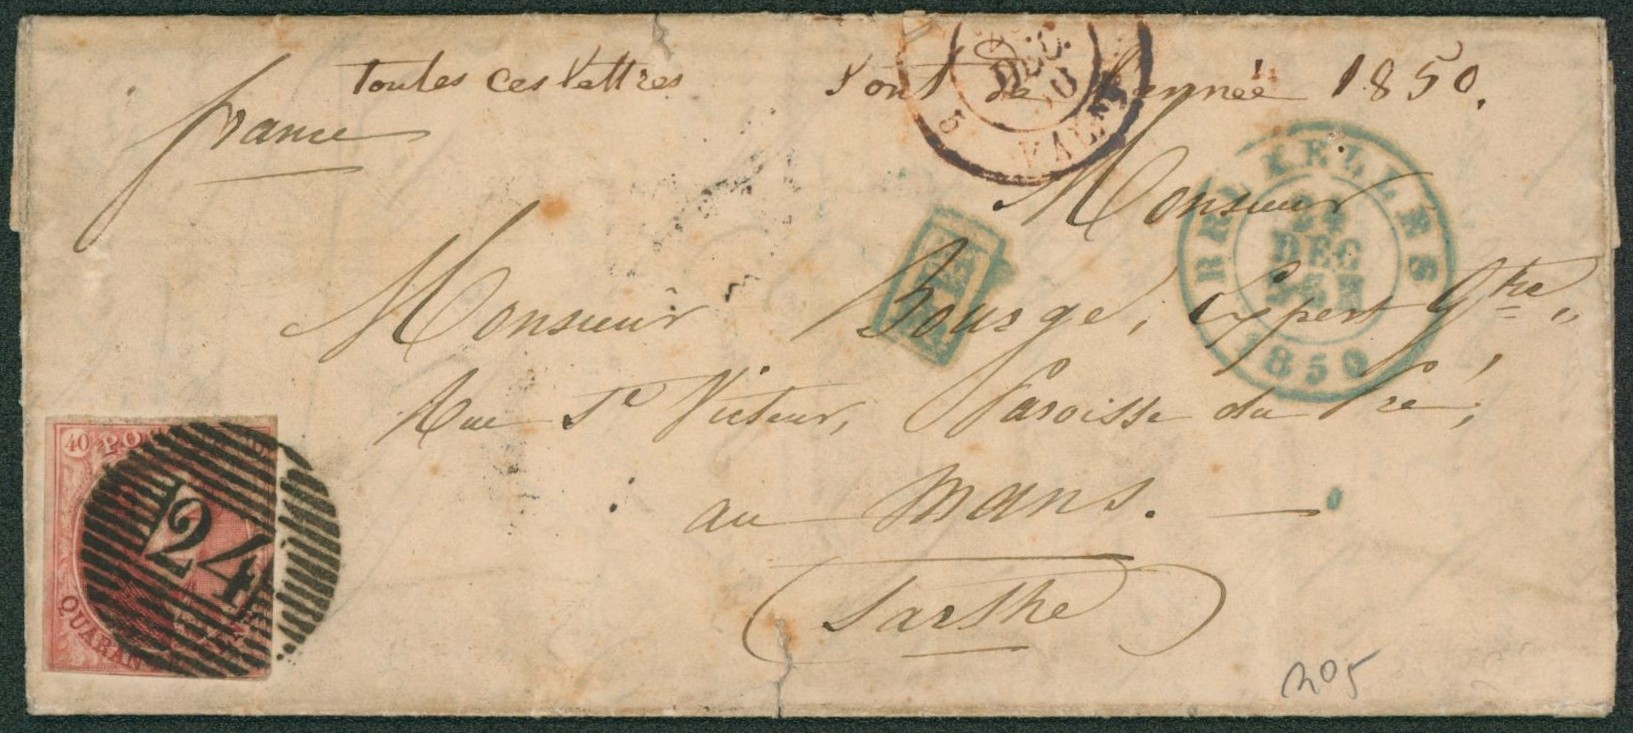 toutes ces lettres sont de l'année 1850.
france
DEC. 50
5 VALENC
Monsieur
BRUXELLES 24 DEC 1850
Monsieur Bourge, Expert Gtre,
Rue St Victeur, Paroisse du Pré,
au mans.
Sarthe
40
24
QUARAN
205